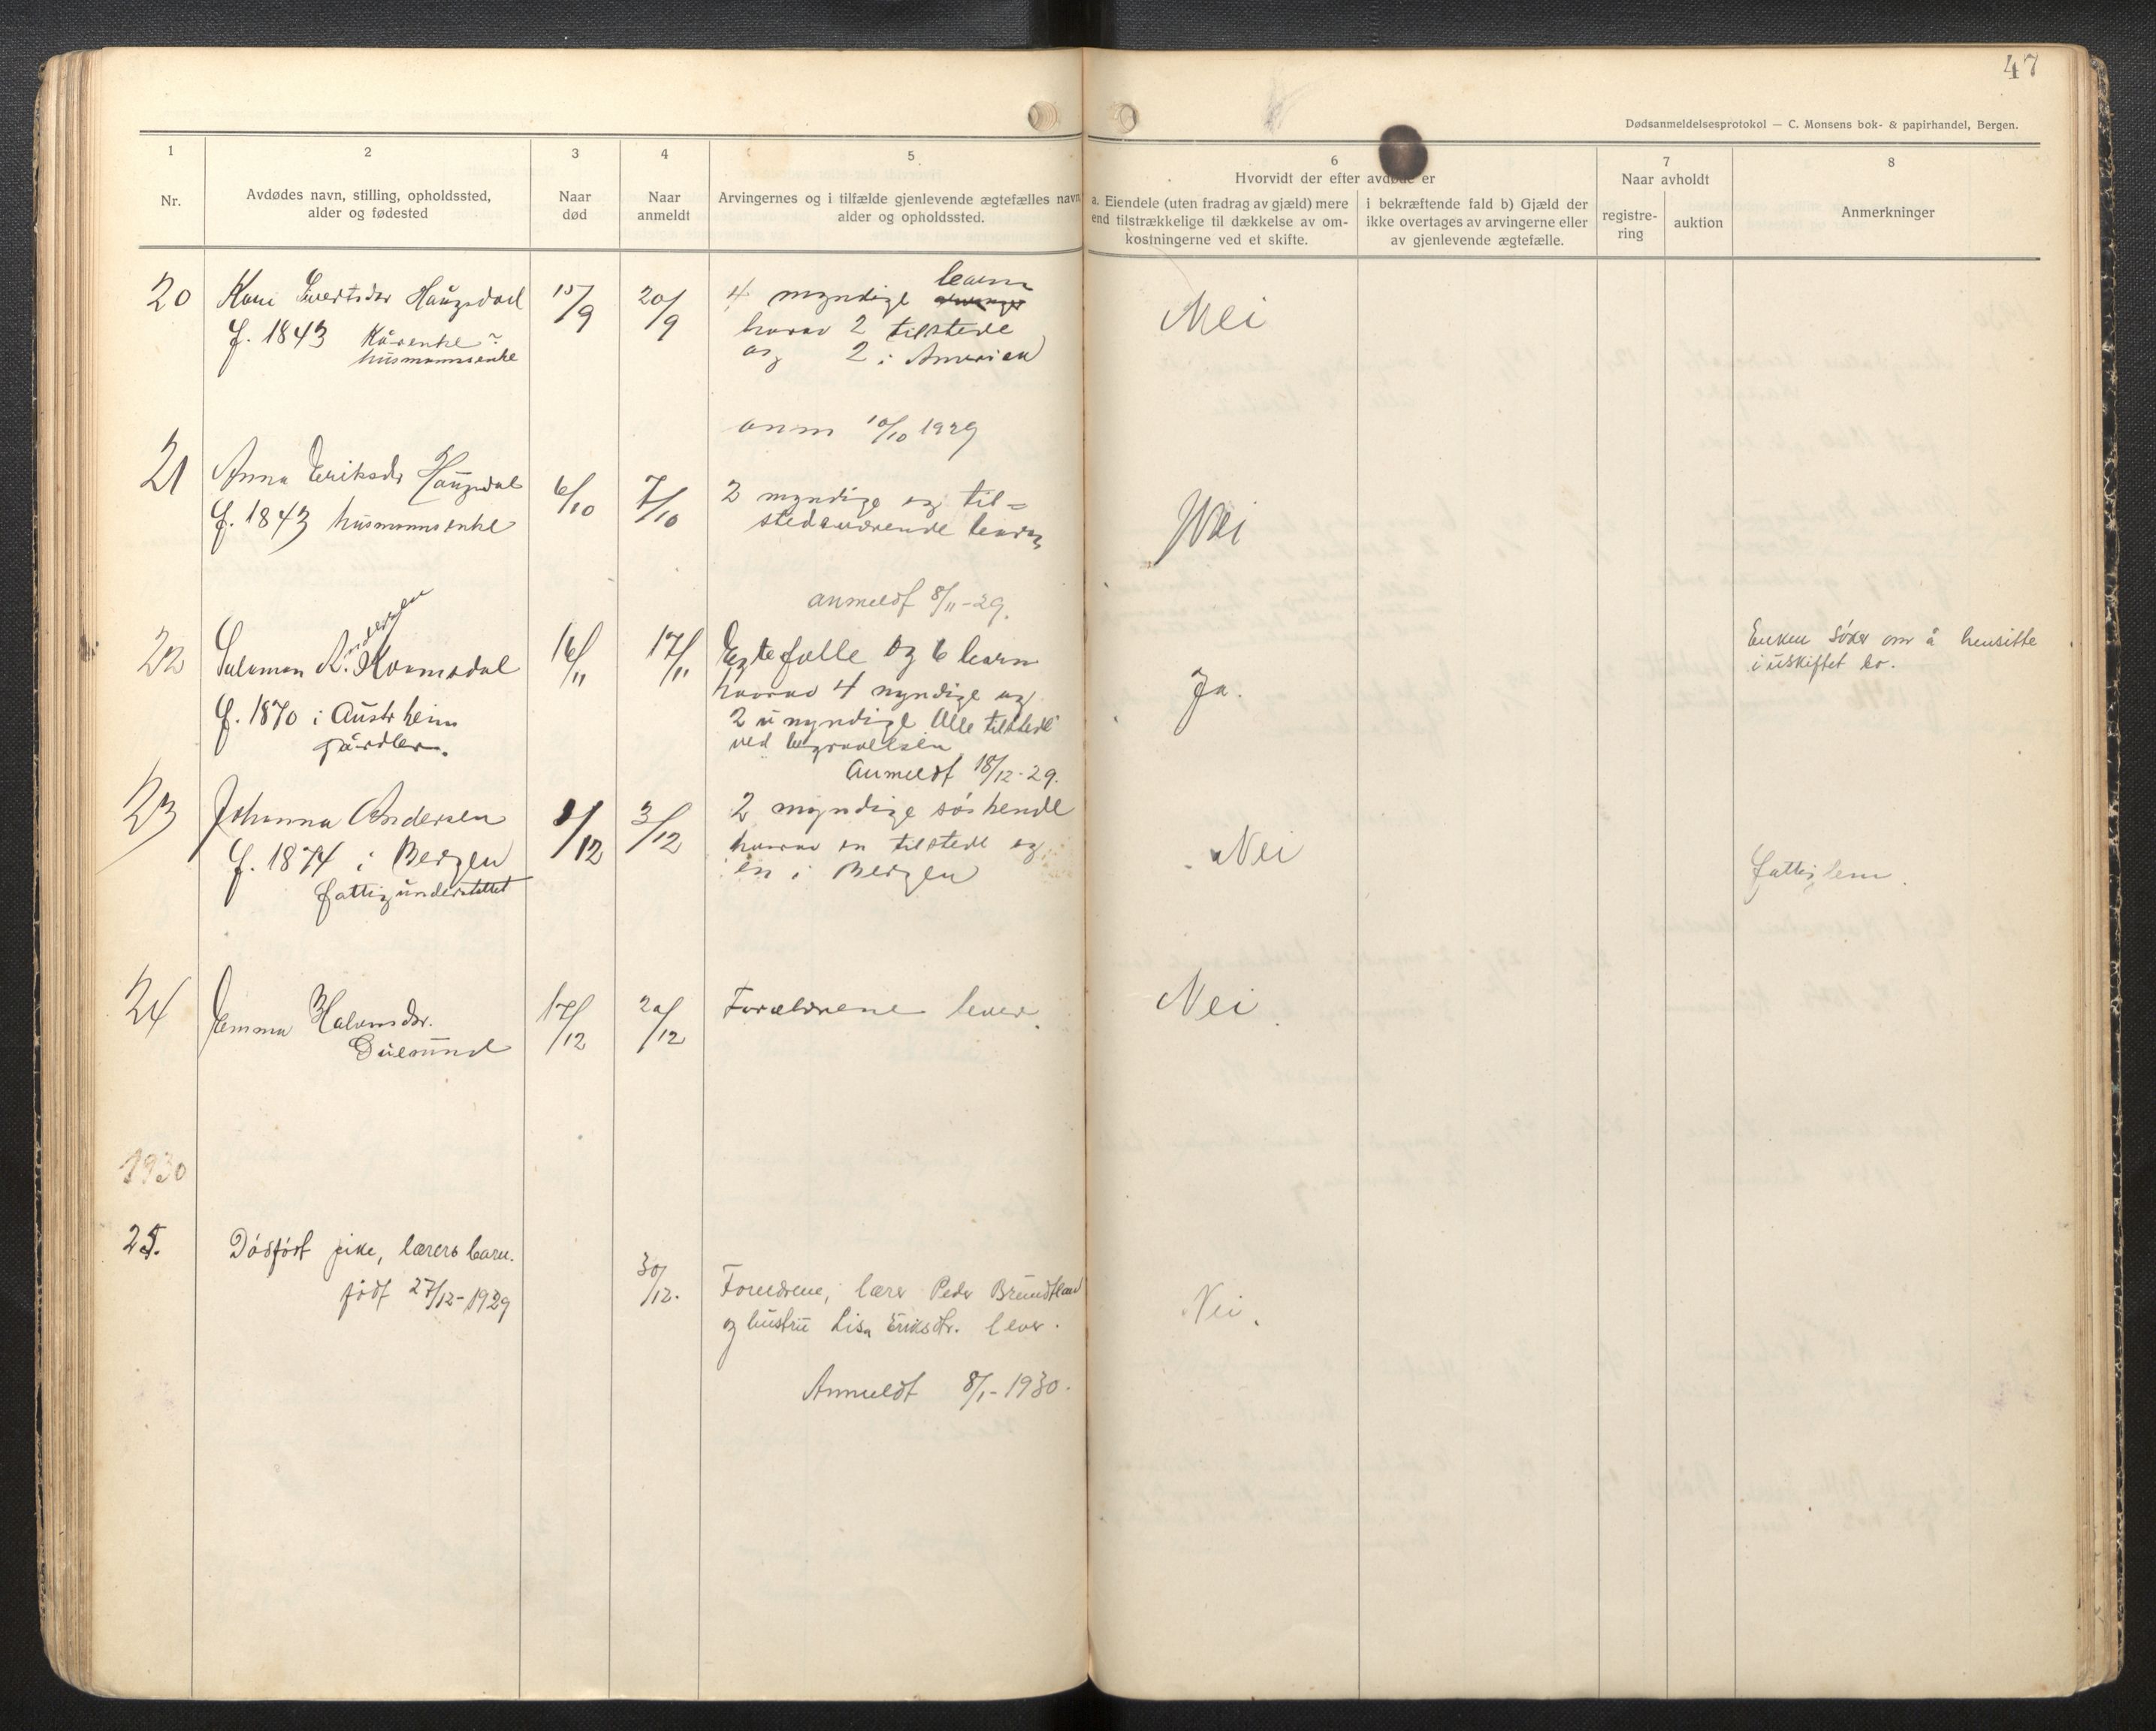 47
Dødsanmeldelsesprotokol — C. Monsens bok- & papirhandel, Bergen.
1
2
3
4
5
6
7
8
Nr.
Avdødes navn, stilling, opholdssted,
alder og fødested
Naar
død
Naar
anmeldt
Arvingernes og i tilfælde gjenlevende ægtefælles navn
alder og opholdssted.
Hvorvidt der efter avdøde er
a. Eiendele (uten fradrag av gjæld) mere
end tilstrækkelige til dækkelse av om-
kostningerne ved et skifte.
i bekræftende fald b) Gjæld der
ikke overtages av arvingerne eller
av gjenlevende ægtefælle.
Naar avholdt
registre-
ring
auktion
Anmerkninger
20
Kari Sivertsdr Haugsdal
f. 1843 Kårenke
husmannsenke
15/9
20/9
4 myndige barn
hvorav 2 tilstede
og 2 i Amerika
Nei
anm 10/10 1929
21
Anna Eriksdr Haugsdal
f. 1843 husmannsenke
6/10
7/10
2 myndige og til=
stedeværende barn
Nei
anmeldt 8/11-29.
22
Salomon A. Kvamsdal
Andersen
f. 1870 i Austrheim
gårdbr.
16/11
17/11
Egtefelle og 6 barn
hvorav 4 myndige og
2 umyndige Alle tilstede
ved begravelsen
Ja.
Enken søker om å hensitte
i uskiftet bo.
Anmeldt 18/12-29.
23
Johanna Andersen
f. 1874 i Bergen
fattigunderstøttet
/12
3/12
2 myndige søskende
hvorav en tilstede og
en i Bergen
Nei
fattiglem.
24
Emma Halvorsdr.
Duesund
17/12
20/12
Forældrene lever.
Nei
1930
25.
Dødfødt pike, lærers barn.
født 27/12-1929
30/12.
Foreldrene, lærer Peder Brundtland
og hustru Lisa Eriksdtr. lever.
Nei.
Anmeldt 8/1-1930.